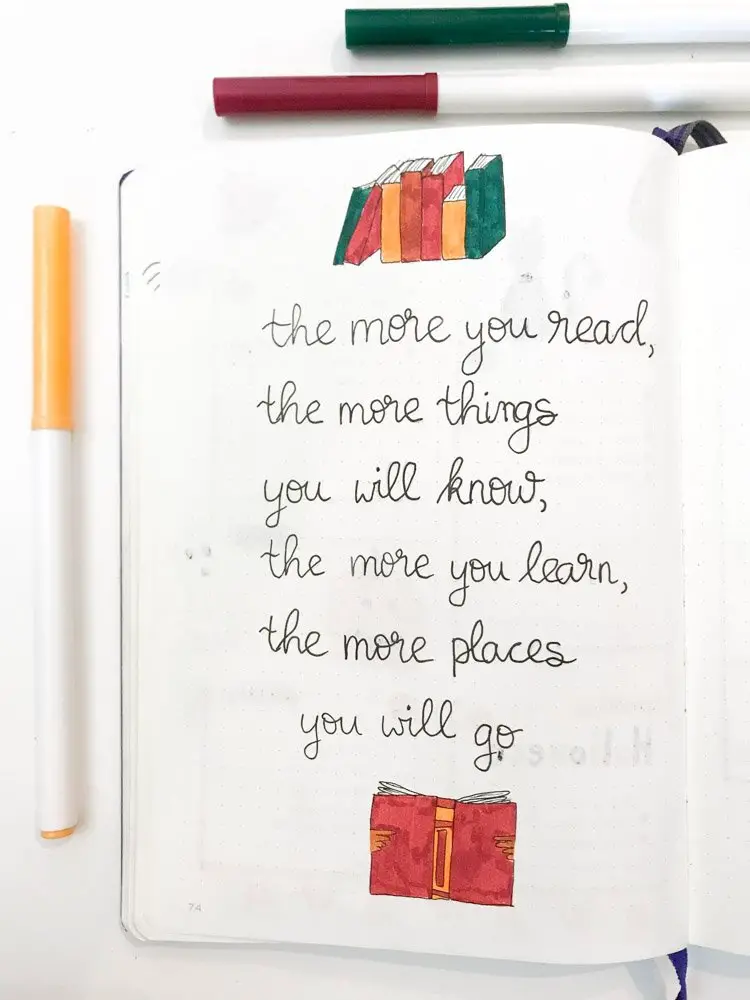 the more you read,
the more things
you will know,
the more you learn,
the more places
you will go
74